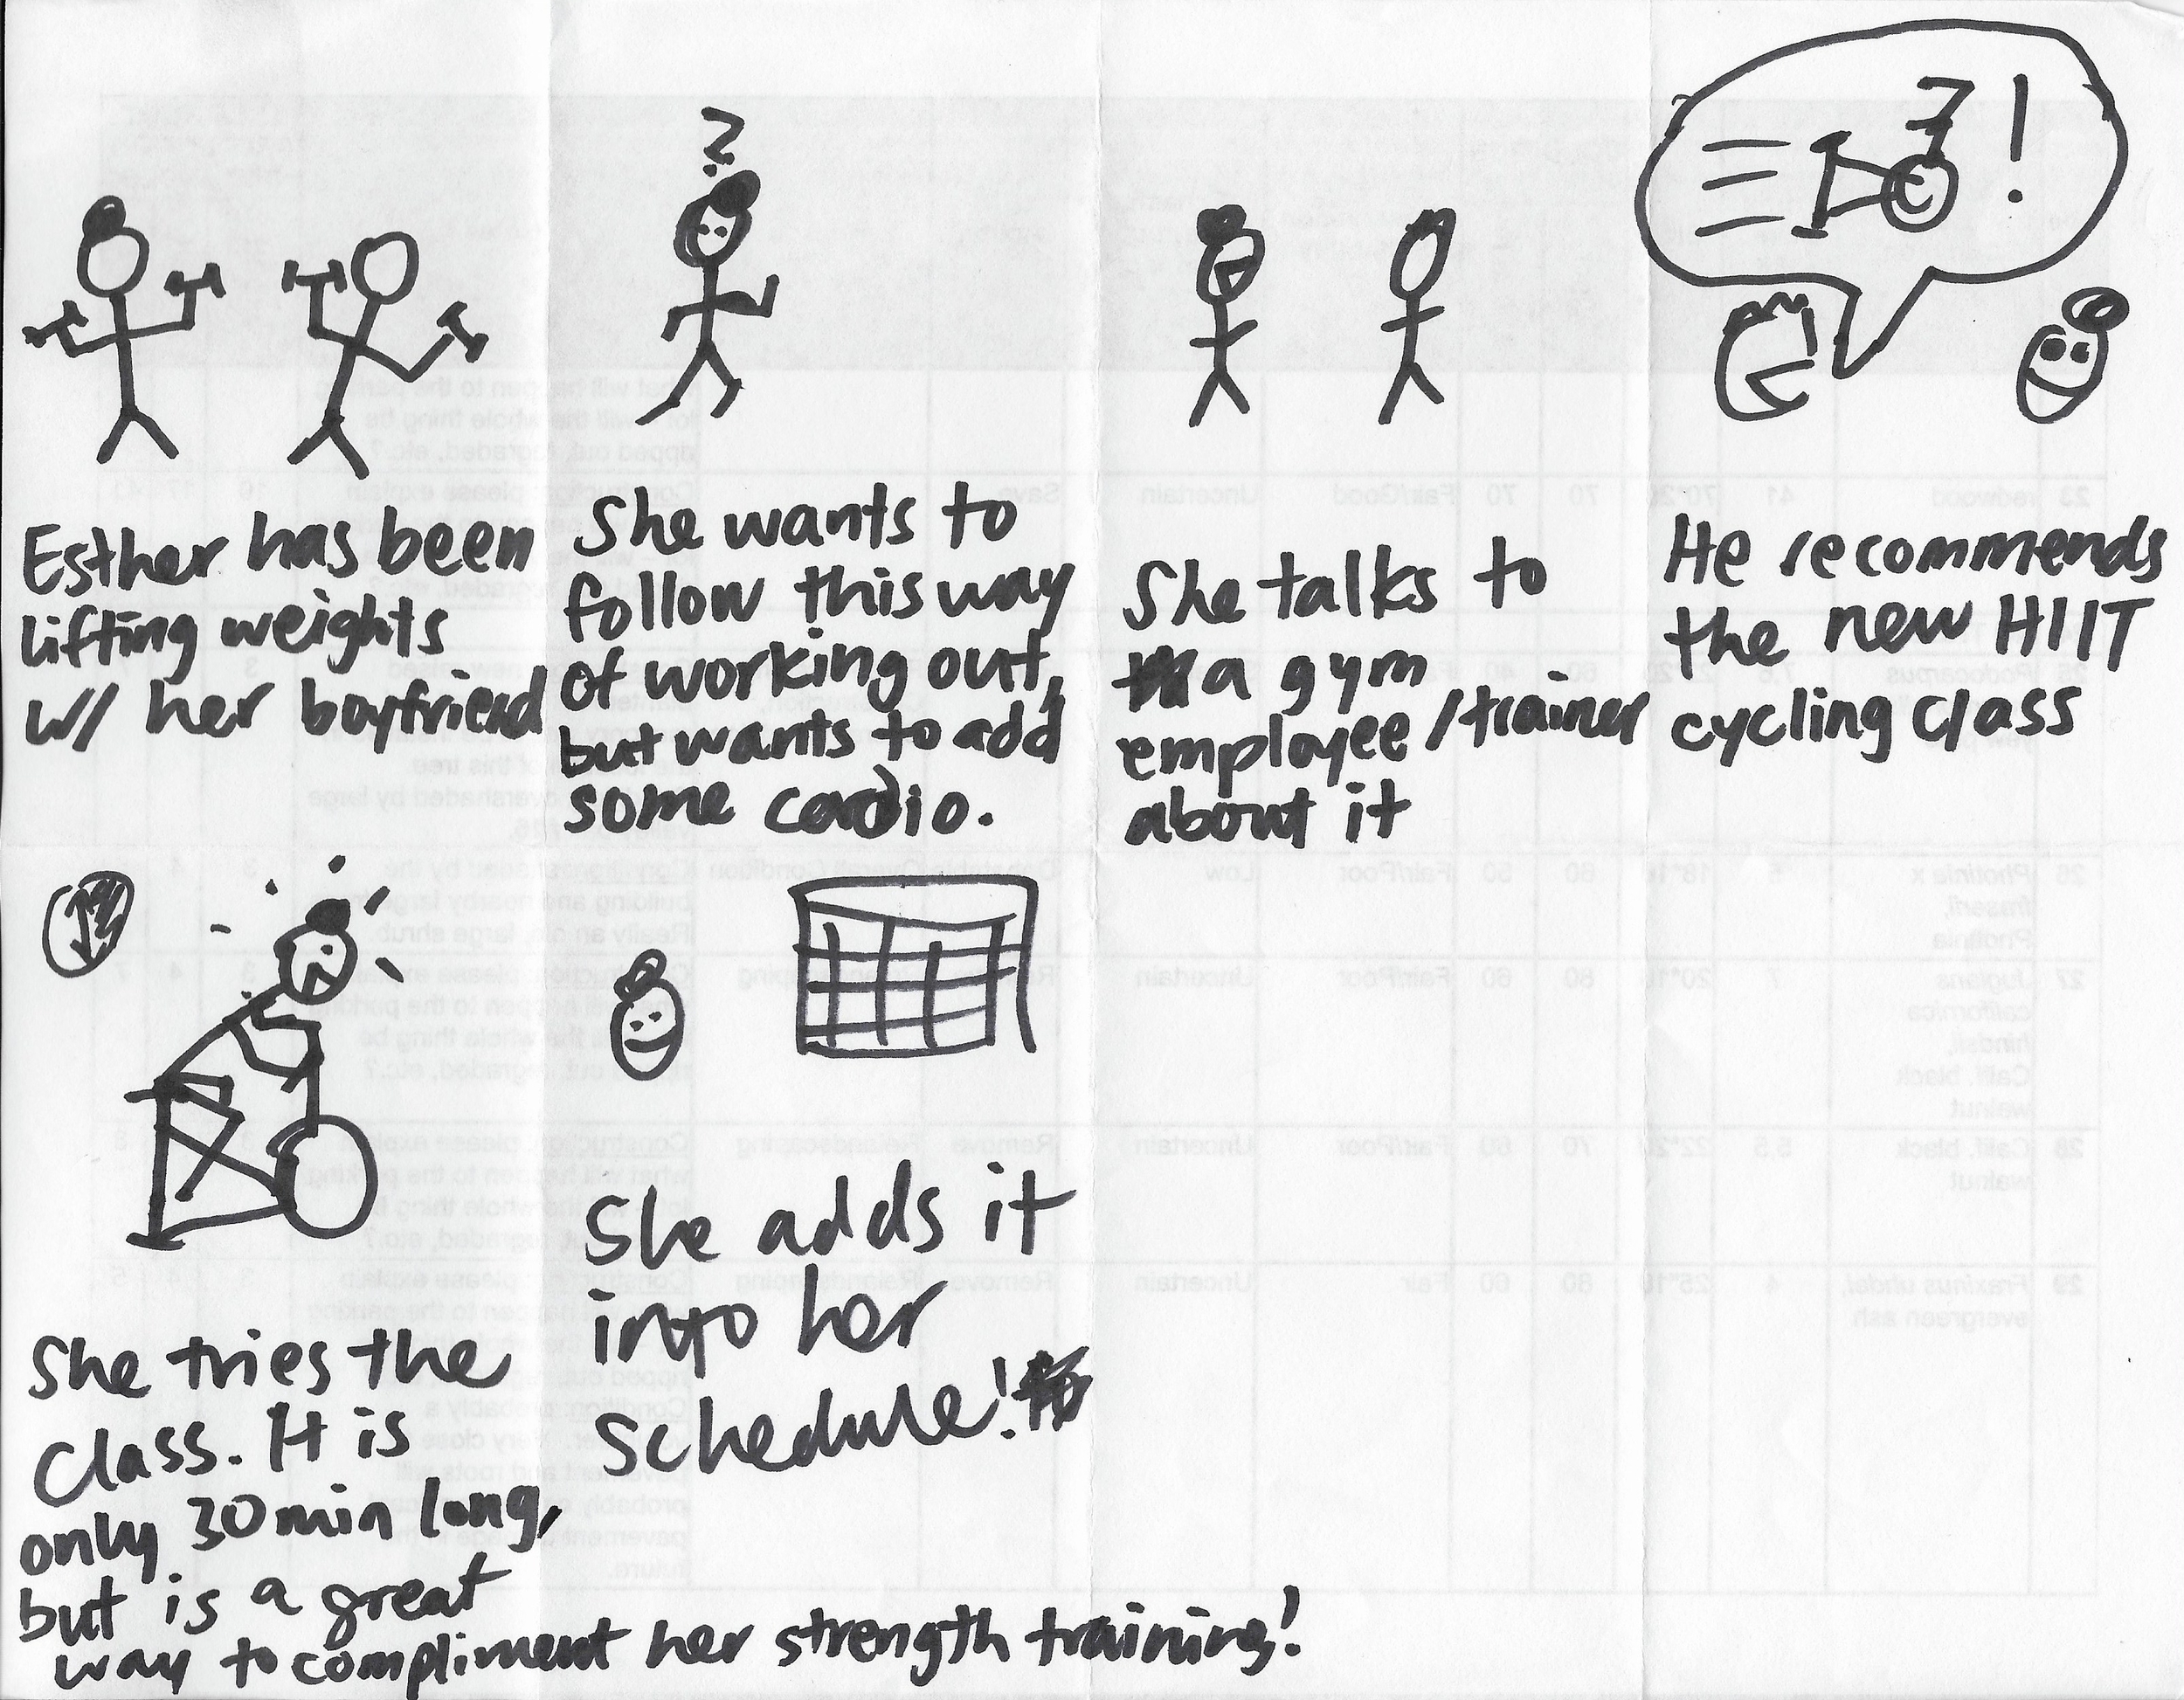 Esther has been
lifting weights
w/ her boyfriend
?
She wants to
follow this way
of working out,
but wants to add
some cardio.
She talks to
a gym
employee/trainer
about it
!
He recommends
the new HIIT
cycling class
She tries the
class. It is
only 30 min long,
but is a great
way to compliment her strength training!
She adds it
into her
schedule!